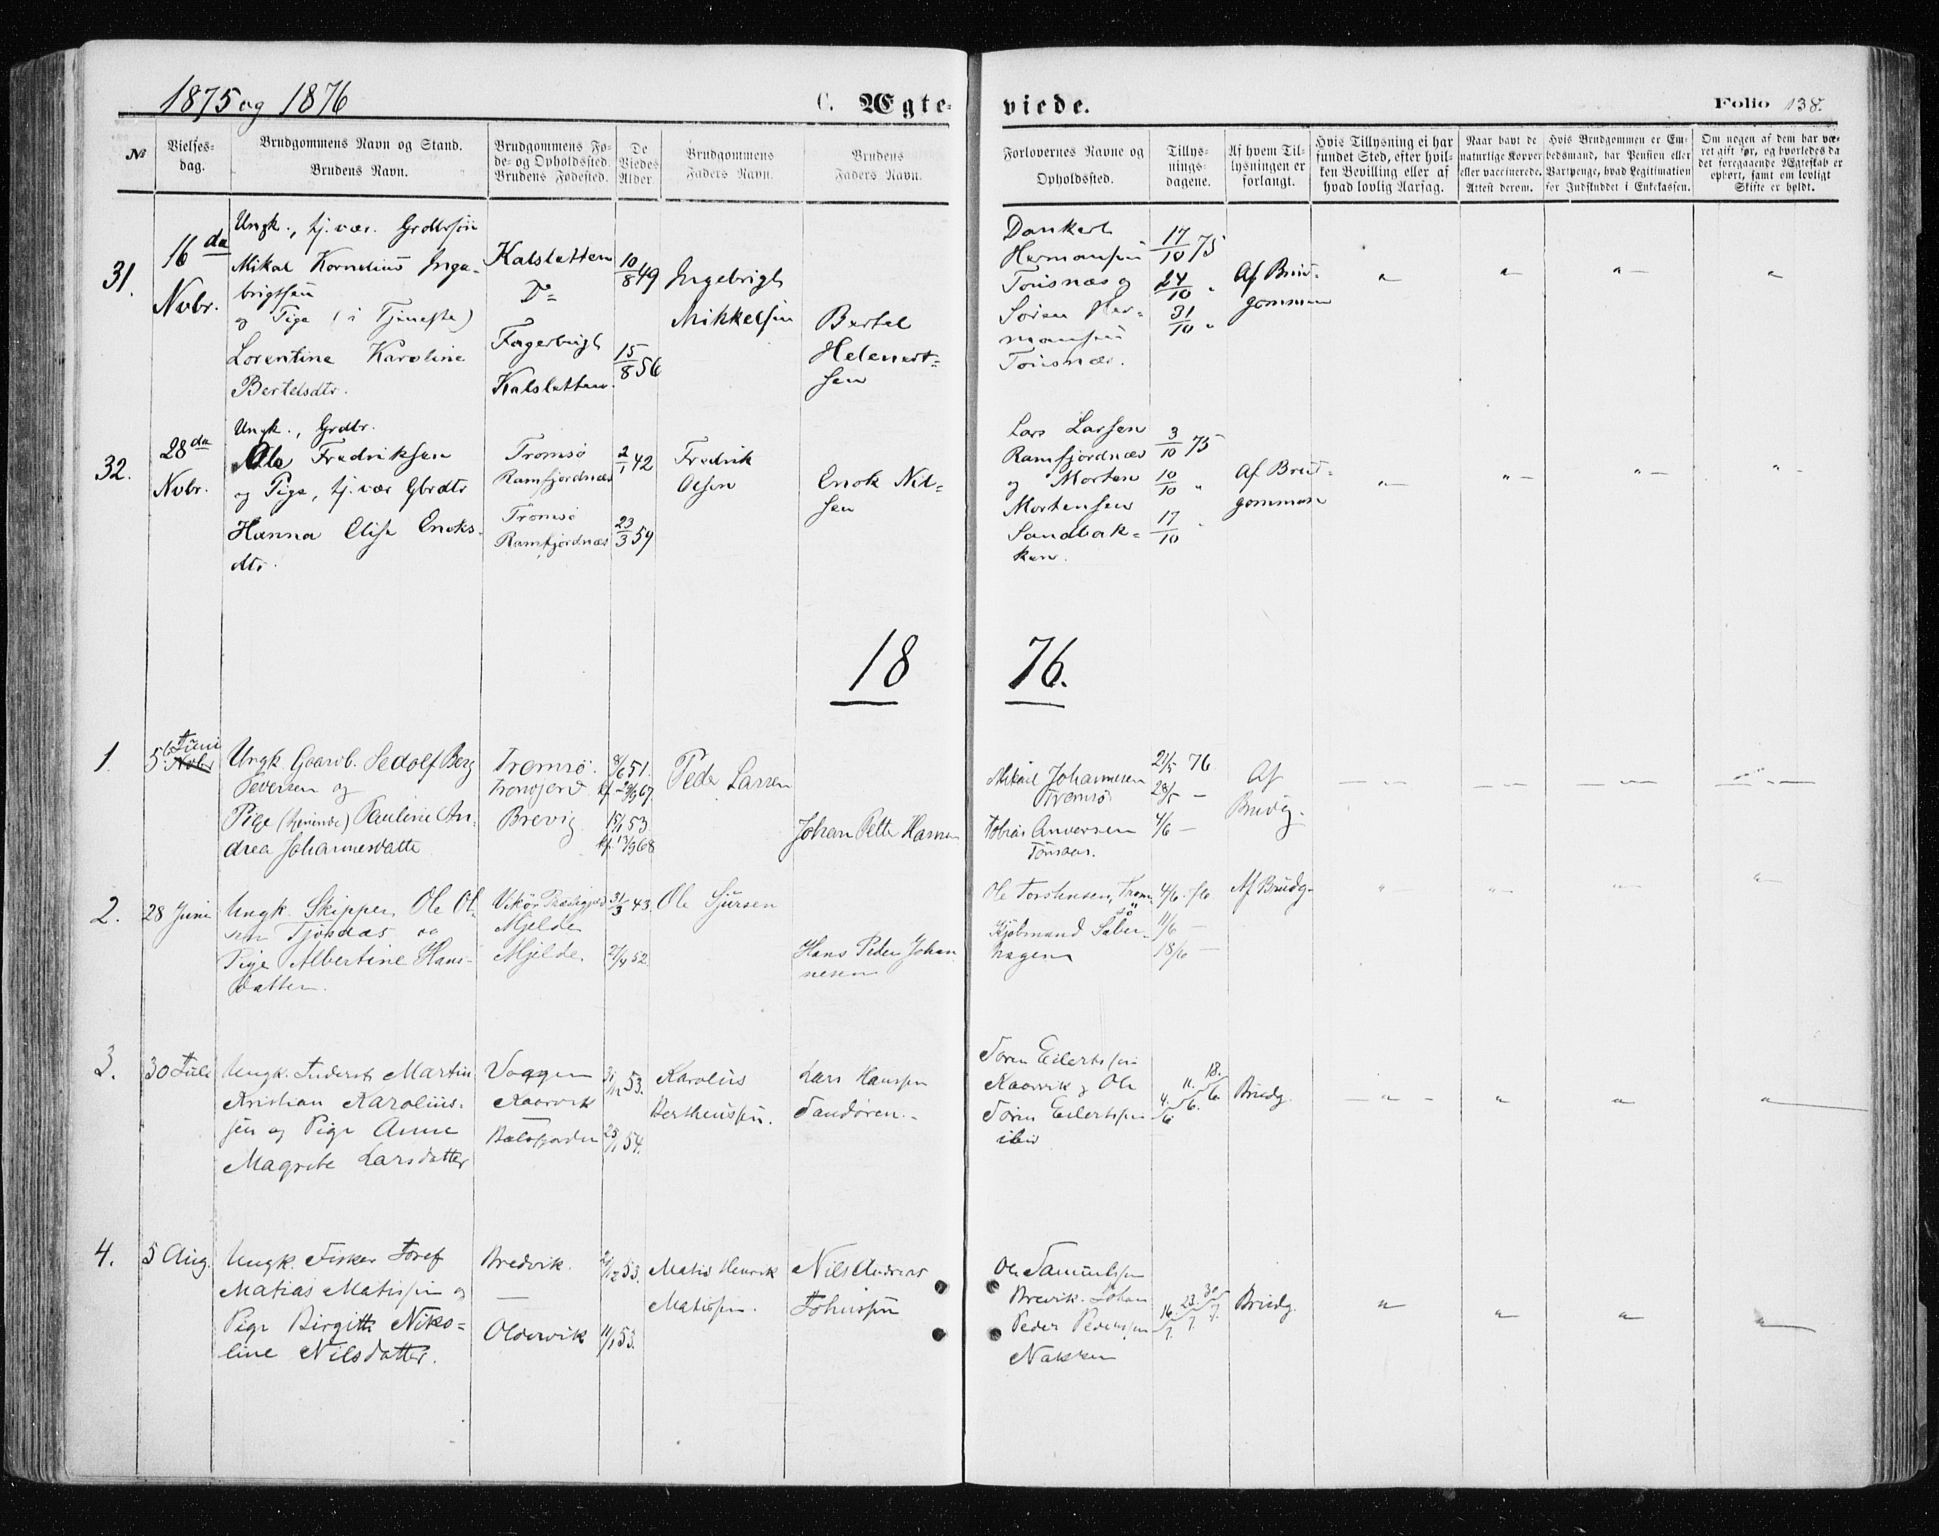 1875 og 1876
C. Ægte-
viede.
Folio 138.
No
Vielses-
dag.
Brudgommens Navn og Stand.
Brudens Navn.
Brudgommens Fø-
de- og Opholdssted.
Brudens Fødested.
De
Viedes
Alder.
Brudgommens
Faders Navn.
Brudens
Faders Navn.
Forlovernes Navne og
Opholdssted.
Tillys-
nings-
dagene.
Af hvem Til-
lysningen er
forlangt.
Hvis Tillysning ei har
fundet Sted, efter hvil-
ken Bevilling eller af
hvad lovlig Aarsag.
Naar havt de
naturlige Kopper
eller vaccinerede.
Attest derom.
Hvis Brudgommen er Em-
bedsmand, har Pension eller
Vartpenge, hvad Legitimation
for Indskuddet i Enkekassen.
Om nogen af dem har væ-
ret gift før, og hvorledes da
det foregaaende Ægteskab er
ophørt, samt om lovligt
Skifte er holdt.
31.
16 de
Novbr.
Ungk., tj. vær. Grdbrsøn
Mikal Kornelius Inge-
brigtsen
og Pige (i Tjeneste)
Lorentine Karoline
Bertelsdtr.
Kalsletten
Do
Kalsletten
10/8 49
15/8 56
Ingebrigt
Mikkelsen
Bertel
Helenert-
sen
Dankert
Hermansen
Tønsnæs og
Søren Her-
mansen
Tønsnæs.
17/10 75
24/10 "
31/10 "
Af Brud-
gommen
32.
28 de
Novbr.
Ungk., Grdbr.
Ole Fredriksen
og Pige, tj. vær Gbrdtr
Hanna Elise Enoks-
dtr.
Tromsø
Ramfjordnæs
Tromsø
Ramfjordnæs
2/1 42
23/3 59
Fredrik
Olsen
Enok Nil-
sen
Lars Larsen
Ramfjordnæs
og Morten
Mortensen
Sandbak-
ken.
3/10 75
10/10 "
17/10 "
Af Brud-
gommen
18 76.
1.
5 Juni
Novbr
Ungk. Gaardb. Sedolf Berg
Pedersen og
Pige (tjenende) Pauline An-
drea Johannesdatter
Tromsø.
Brevig
8/6 51.
15/1 53
Peder Larsen
Johan Petter Hansen
Mikael Johannesen
Tromsø
Tobias Andersen
Tønsnæs.
21/5 76
28/5 —
4/6 —
Af
Brudg.
2.
28 Juni
Ungk. Skipper, Ole Ol-
sen Tjosaas og
Pige Albertine Hans-
datter.
Vikør Præstegjeld
Mjelde
Mjelde.
31/3 43.
21/4 52.
Ole Sjursen
Hans Peder Johan-
nesen
Ole Torstensen, Trom-
sø
Kjøbmand Saber-
hagen
4/6. 76
11/6 —
18/6 —
Af Brudg.
3.
30 Juli
Martin
Kristian Karolius-
sen og Pige Anne
Magrete Larsdatter
Vaagen
Kaarvik
Balsfjorden
53.
54.
Karolius
Bertheussen.
Lars Hanssen
Sandøren.
Søren Eilertssen
Kaarvik og Ole
Søren Eilertssen
ibid
4/6 11/6. 18/6.
Brudg.
4.
5 Aug.
Ungk. Fisker Josef
Matias Matissen og
Pige Birgitte Niko-
line Nilsdatter.
Bredvik.
Oldervik
53.
11/1 53.
Matis Henrik
Matissen.
Nils Andreas
Johnssen
Ole Samuelssen
Brevik. Johan
Peder Pederssen
Nakken
16/7. 23/7 30/7.
Brudg.